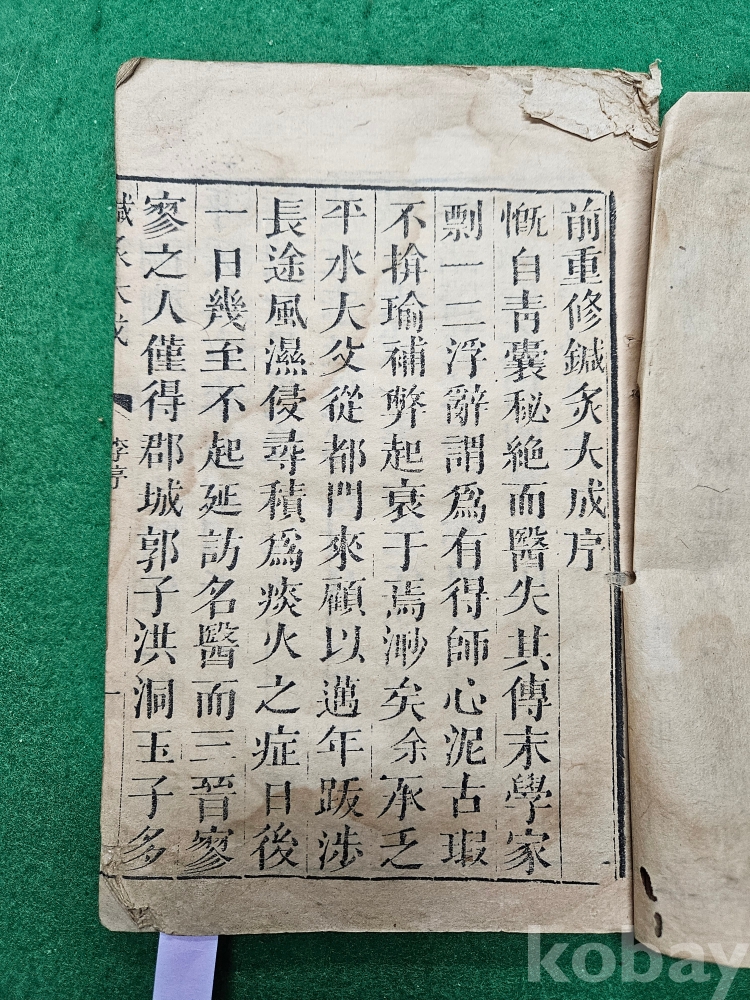 前重修鍼灸大成序
慨自靑囊秘絶而醫失其傳末學家
剽一二浮辭謂爲有得師心泥古瑕
不揜瑜補弊起衰于焉渺矣余承乏
平水大父從都門來顧以邁年跋涉
長途風濕侵尋積爲痰火之症日後
一日幾至不起延訪名醫而三晉寥
寥之人僅得郡城郭子洪洞玉子多
鍼灸大成
李序
一
kobay